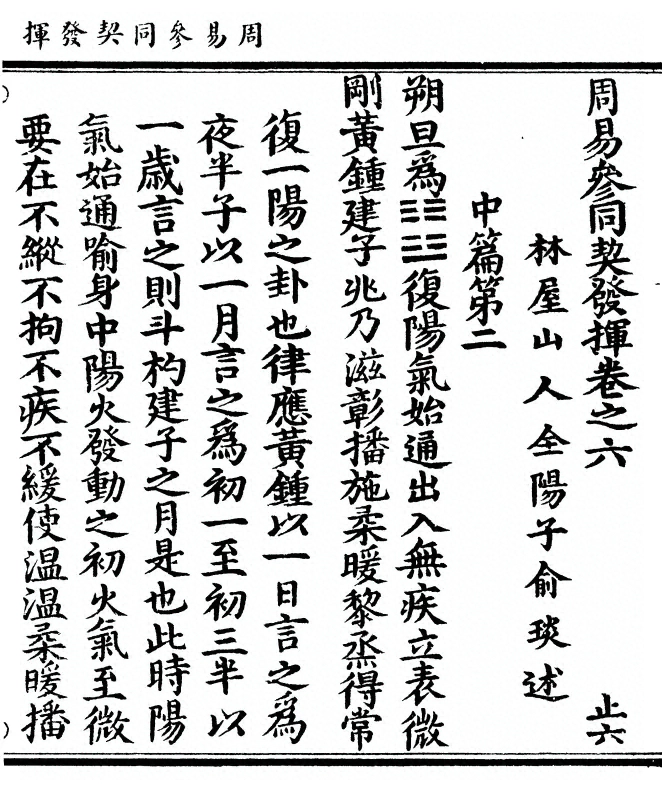 周易參同契發揮
周易參同契發揮卷之六
止六
林屋山人全陽子俞琰述
中篇第二
朔旦爲䷗復陽氣始通出入無疾立表微
剛黃鍾建子兆乃滋彰播施柔暖黎烝得常
復一陽之卦也律應黃鍾以一日言之爲
夜半子以一月言之爲初一至初三半以
一歲言之則斗杓建子之月是也此時陽
氣始通喻身中陽火發動之初火氣至微
要在不縱不拘不疾不緩使温温柔暖播